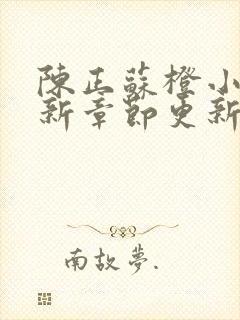 陳正蘇橙小
新章節更新
南故夢.